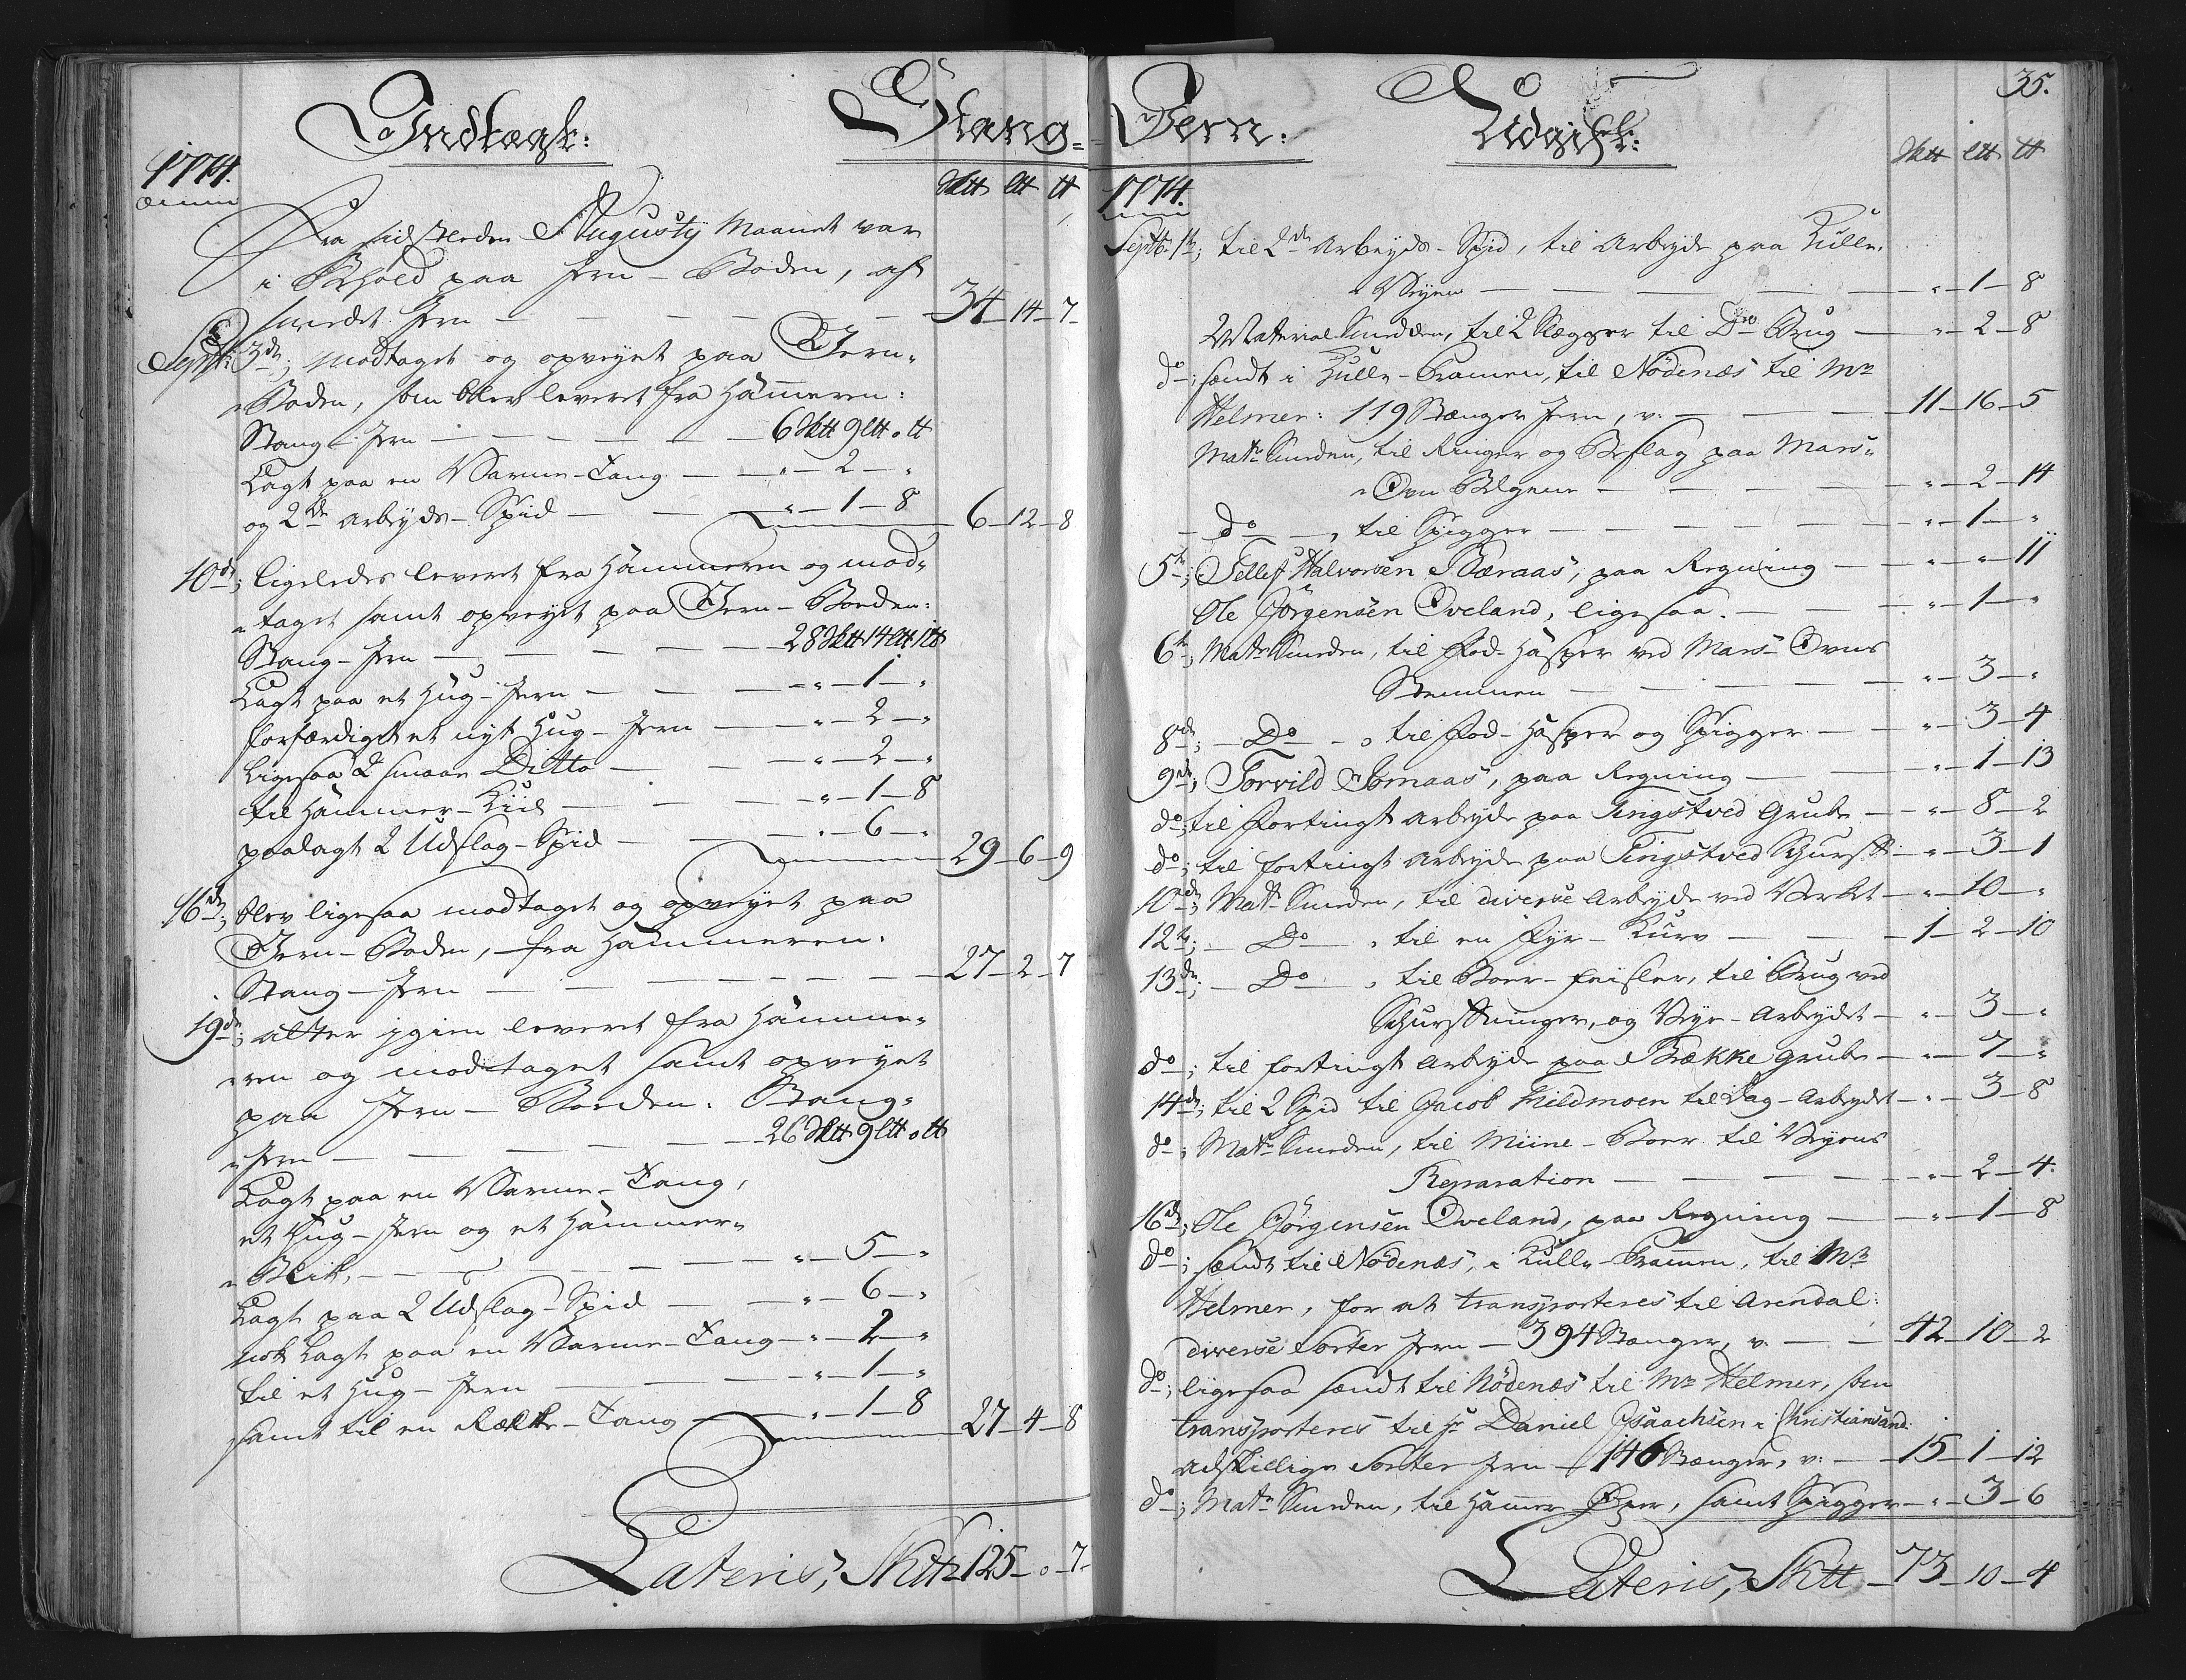 Indtægt:
Stang-
1774.
Sktt Ltt tt
Fra sidstleden Augusty Maanet var
i Behold paa Jern-Boden, af
smedet Jern — 34-14-7
Septbr 3de; modtaget og opveyet paa Jern-
Boden, som blev leveret fra Hammeren:
Stang-Jern — 6 Sktt 9 Ltt " tt
Lagt paa en Varme-Tang — " - 2 - "
og 2de arbeyds-Spid — " - 1 - 8
6-12-8
10de; ligeledes leveret fra Hammeren og mod-
taget samt opveyet paa Jern-Boeden:
Stang-Jern — 28 Sktt 14 Ltt 1 tt
Lagt paa et Hug-Jern — " - 1 - "
forfærdiget et nyt Hug-Jern — " - 2 - "
ligesaa 2 smaae Ditto — " - 2 - "
til Hammer-Kiil — " - 1 - 8
paalagt 2 Udslag-Spid — " - 6 - "
29-6-9
16de; blev ligesaa modtaget og opveyet paa
Jern-Boden, fra Hammeren:
Stang-Jern — 27-2-7
19de; atter igien leveret fra Hamme-
ren og modtaget samt opveyet
paa Jern-Boeden: Stang-
Jern — 26 Sktt 9 Ltt " tt
Lagt paa en Varme-Tang,
et Hug-Jern og et Hammer-
Blik, — " - 5 - "
Lagt paa 2 Udslag-Spid — " - 6 - "
nok Lagt paa en Varme-Tang — " - 2 - "
til et Hug-Jern — " - 1 - "
samt til en Række-Tang — " - 1 - 8
27-4-8
Lateris, Sktt 125 - " - 7
35.
Jern:
Udgift:
1774.
Sktt Ltt tt
Septbr 1te; til 2de Arbeyds-Spid, til Arbeyde paa Kulle-
Veyen — " - 1 - 8
Material Smedden, til 2 Slægger til Do Brug — " - 2 - 8
do; sendt i Kulle-Prammen, til Nödenæs til Mr
Helmer: 119 Stænger Jern, v: — 11-16-5
Matr Smeden, til Ringer og Beslag paa Mars-
Ovn Belgene — " - 2 - 14
do, til Spigger — " - 1 - "
5te; Tellef Halvorsen Bæraas, paa Regning — " - " - 11
Ole Jörgensen Oveland, ligesaa — " - 1 - "
6te; Matr Smeden, til Fod-Hasper ved Mars-Ovns
Stemmen — " - 3 - "
8de; Do, til Fod-Hasper og Spigger — " - 3 - 4
9de; Torvild Aamaas, paa Regning — " - 1 - 13
do; til fortingt Arbeyde paa Tingstved Grube — " - 8 - 2
do; til fortingt Arbeyde paa Tingstved Schurff — " - 3 - 1
10de; Matr Smeden, til diverse Arbeyde ved Verket — " - 10 - "
12te; Do, til en Fyr-Kurv — 1-2-10
13de; Do, til Boer-Feisler, til Brug ved
Schurffninger, og Vey-Arbeydet — " - 3 - "
do; til fortingt Arbeyde paa Bække Grube — " - 7 - "
14de; til 2 Spid til Jacob Mildmoen til Dag-Arbeydet — " - 3 - 8
do; Matr Smeden, til Miine-Boer til Veyens
Reparation — " - 2 - 4
16de; Ole Jörgensen Oveland, paa Regning — " - 1 - 8
do; sendt til Nödenæs, i Kulle-Prammen, til Mr
Helmer, for at transporteres til Arendal:
diverse Sorter Jern — 394 Stænger, v: — 42-10-2
do; ligesaa sendt til Nödenæs til Mr Helmer, som
transporteres til Hr Daniel Isaachsen i Christiansand:
adskillige Sorter Jern — 146 Stænger, v: — 15-1-12
do; Matr Smeden, til Hammer Öxer, samt Spigger — " - 3 - 6
Lateris, Sktt 73-10-4